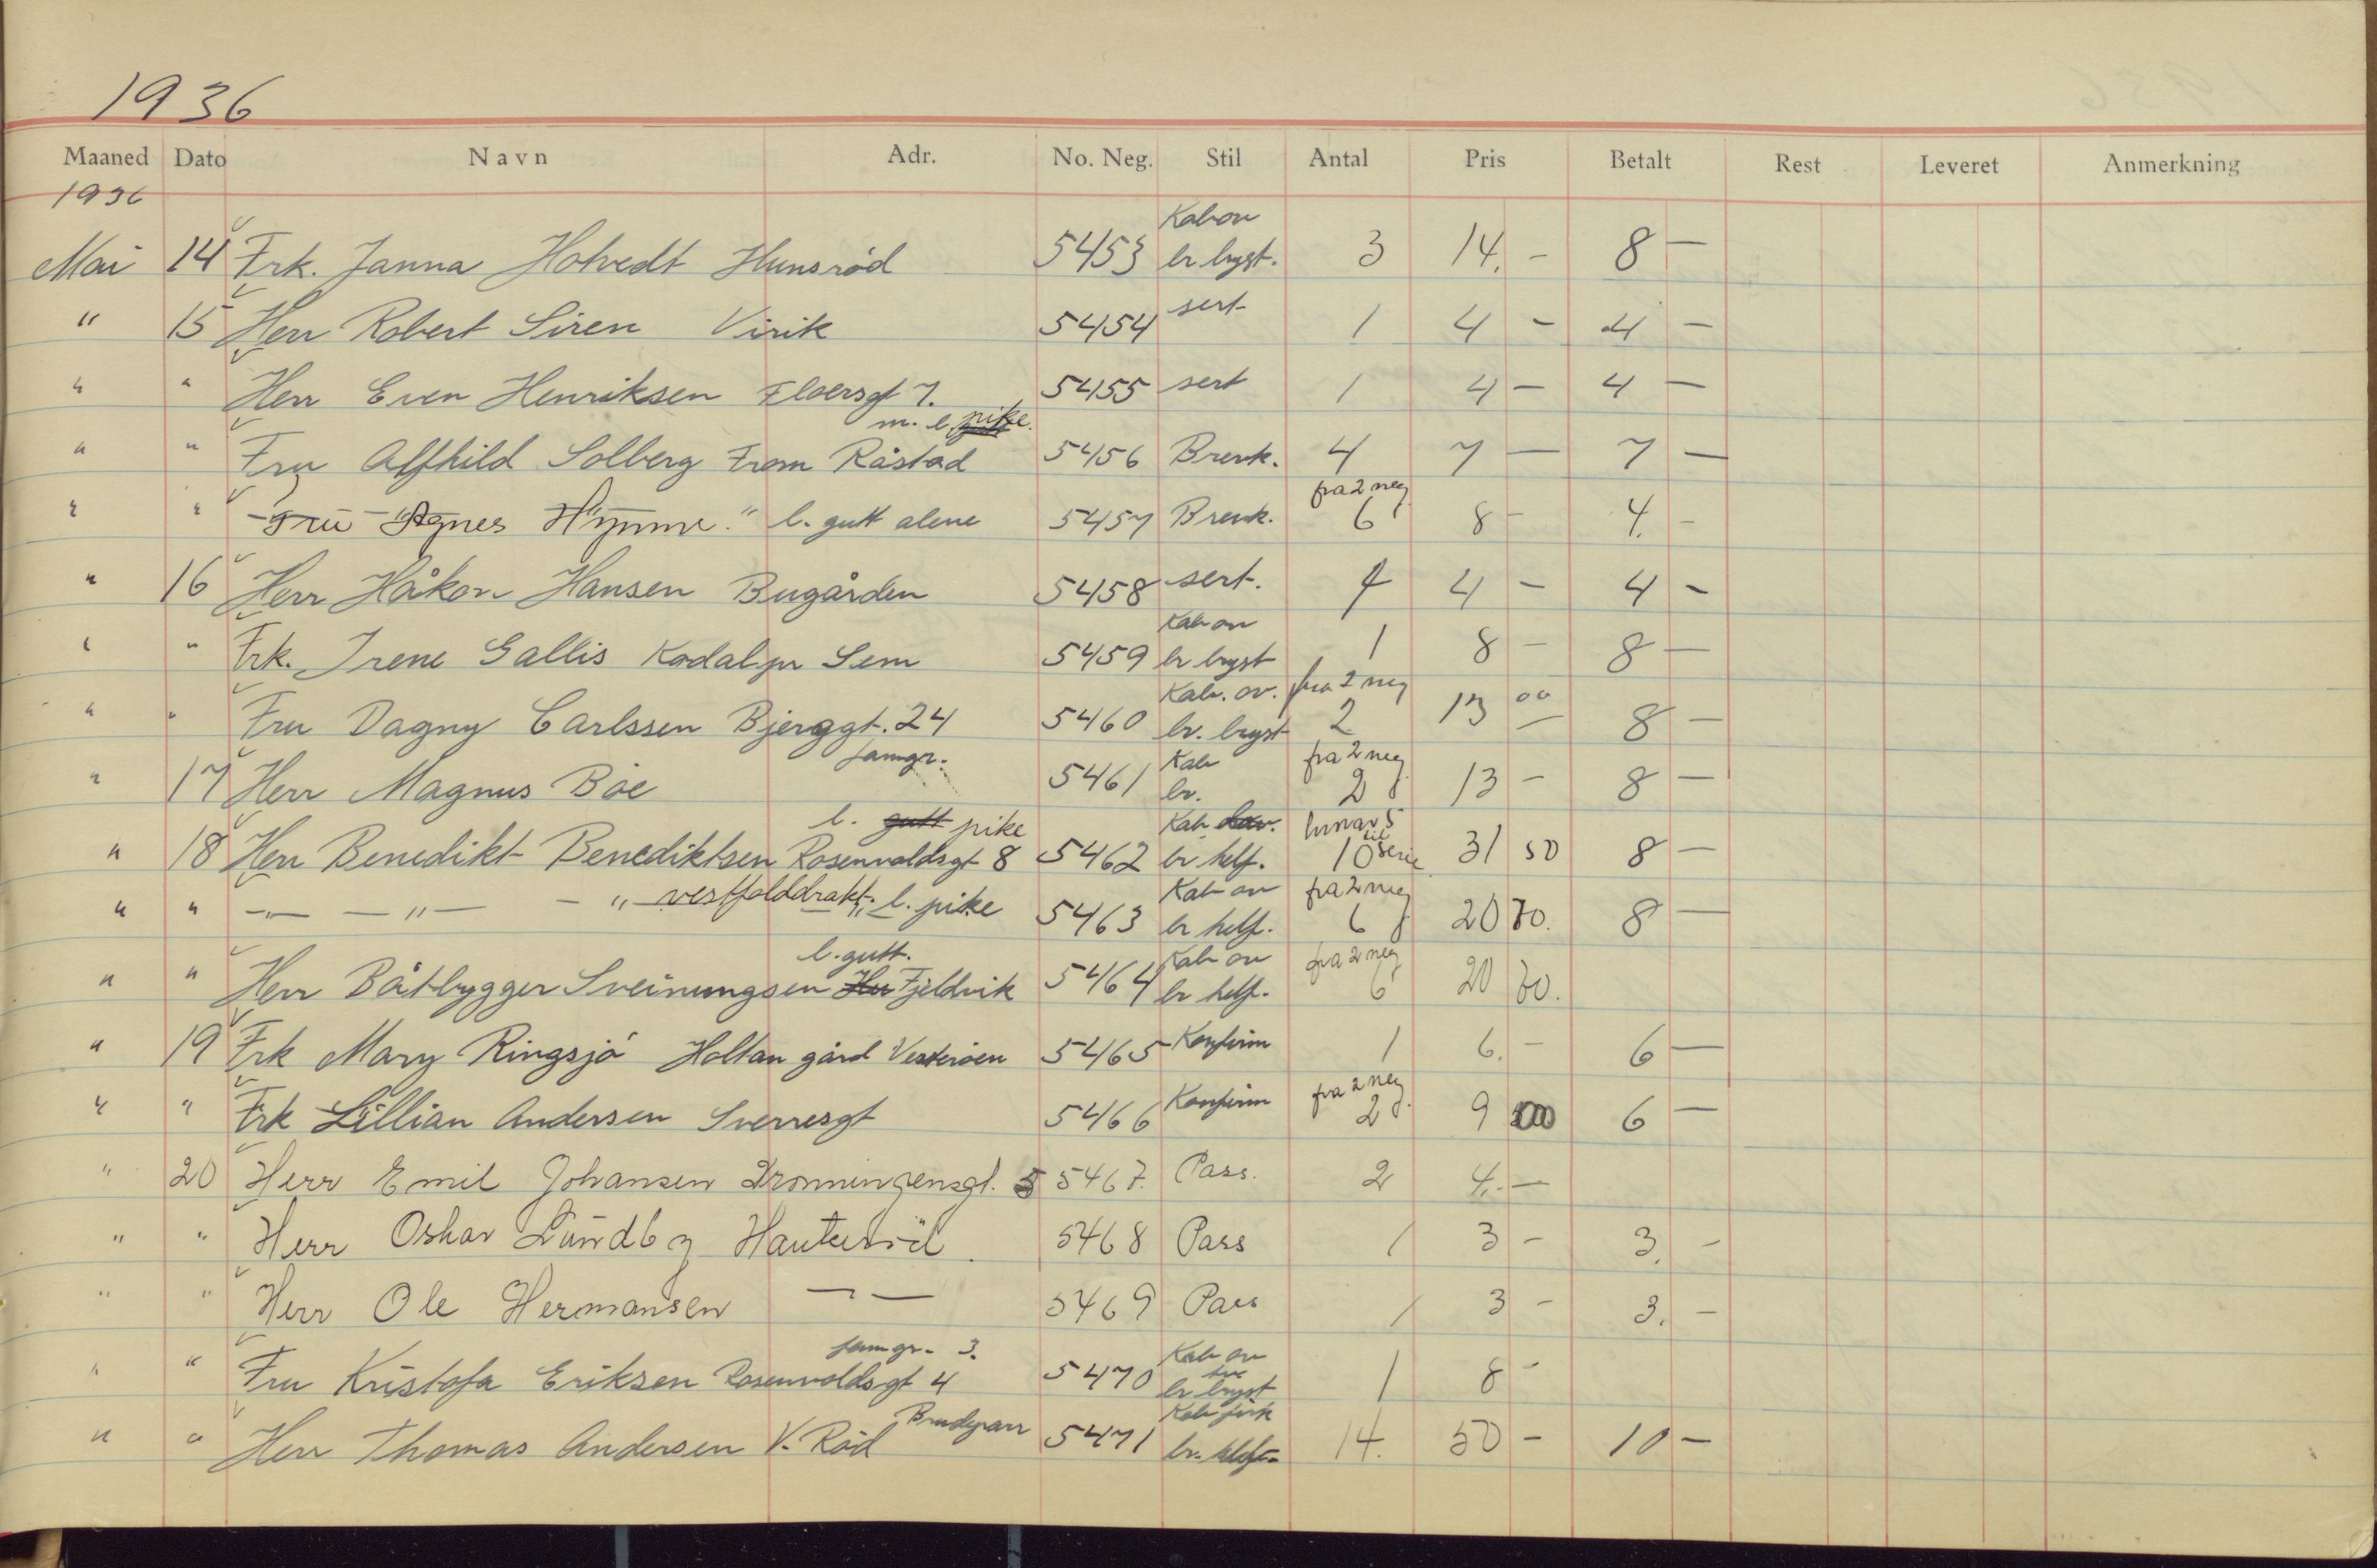 1936
Maaned Dato Navn Adr. No. Neg. Stil Antal Pris Betalt Rest Leveret Anmerkning
1936
Kab ov
Mai 14 Frk. Janna Hotvedt Hunsrød 5453 br bryst. 3 14. - 8 -
" 15 Herr Robert Siren Virik 5454 sert 1 4 - 4 -
" " Herr Even Henriksen Floersgt 7. 5455 sert 1 4 - 4 -
m. l. pike.
" " Fru Alfhild Solberg Fram Råstad 5456 Brevk. 4 7 - 7 -
fra 2 neg
" " Fru Agnes l. gutt alene 5457 Brevk. 6 8 - 4. -
" 16 Herr Håkon Hansen Bugården 5458 sert. 4 - 4 -
Kab ov
" " Frk. Irene Gallis Kodal pr Sem 5459 br bryst 1 8 - 8 -
Kab. ov. fra 2 neg
" " Fru Dagny Carlssen Bjerggt. 24 5460 br. bryst 2 13 00 8 -
famgr. Kab fra 2 neg
" 17 Herr Magnus Bøe 5461 br. 2 13 - 8 -
l. gutt pike Kab 5
" 18 Herr Benedikt Benediktsen Rosenvoldsgt 8 5462 br helf. 10 serie 31 50 8 -
Kab ov fra 2 neg
" " -"- -"- - " - vestfolddrakt. l. pike 5463 br helf. 6 20 70. 8 -
l. gutt. Kab ov fra 2 neg
" " Herr Båtbygger Sveinungsen Fjeldvik 5464 br helf. 6 20 70.
" 19 Frk Mary Ringsjø Holtan gård Vesterøen 5465 Konfirm 1 6. - 6 -
fra 2 neg.
" " Frk Lillian Andersen Sverresgt 5466 Konfirm 2 9 6 -
" 20 Herr Emil Johansen Dronningensgt. 5 5467. Pass. 2 4. -
" " Herr Oskar Lundbg 5468 Pass 1 3 - 3. -
" " Herr Ole Hermansen - - 5469 Pass 1 3 - 3. -
famgr. 3. Kab ov
" " Fru Kristofa Eriksen Rosenvoldsgt 4 5470 br bryst 1 8 -
Brudepar Kab
" " Herr Thomas Andersen V. Råd 5471 br. helf. 14. 50 - 10 -